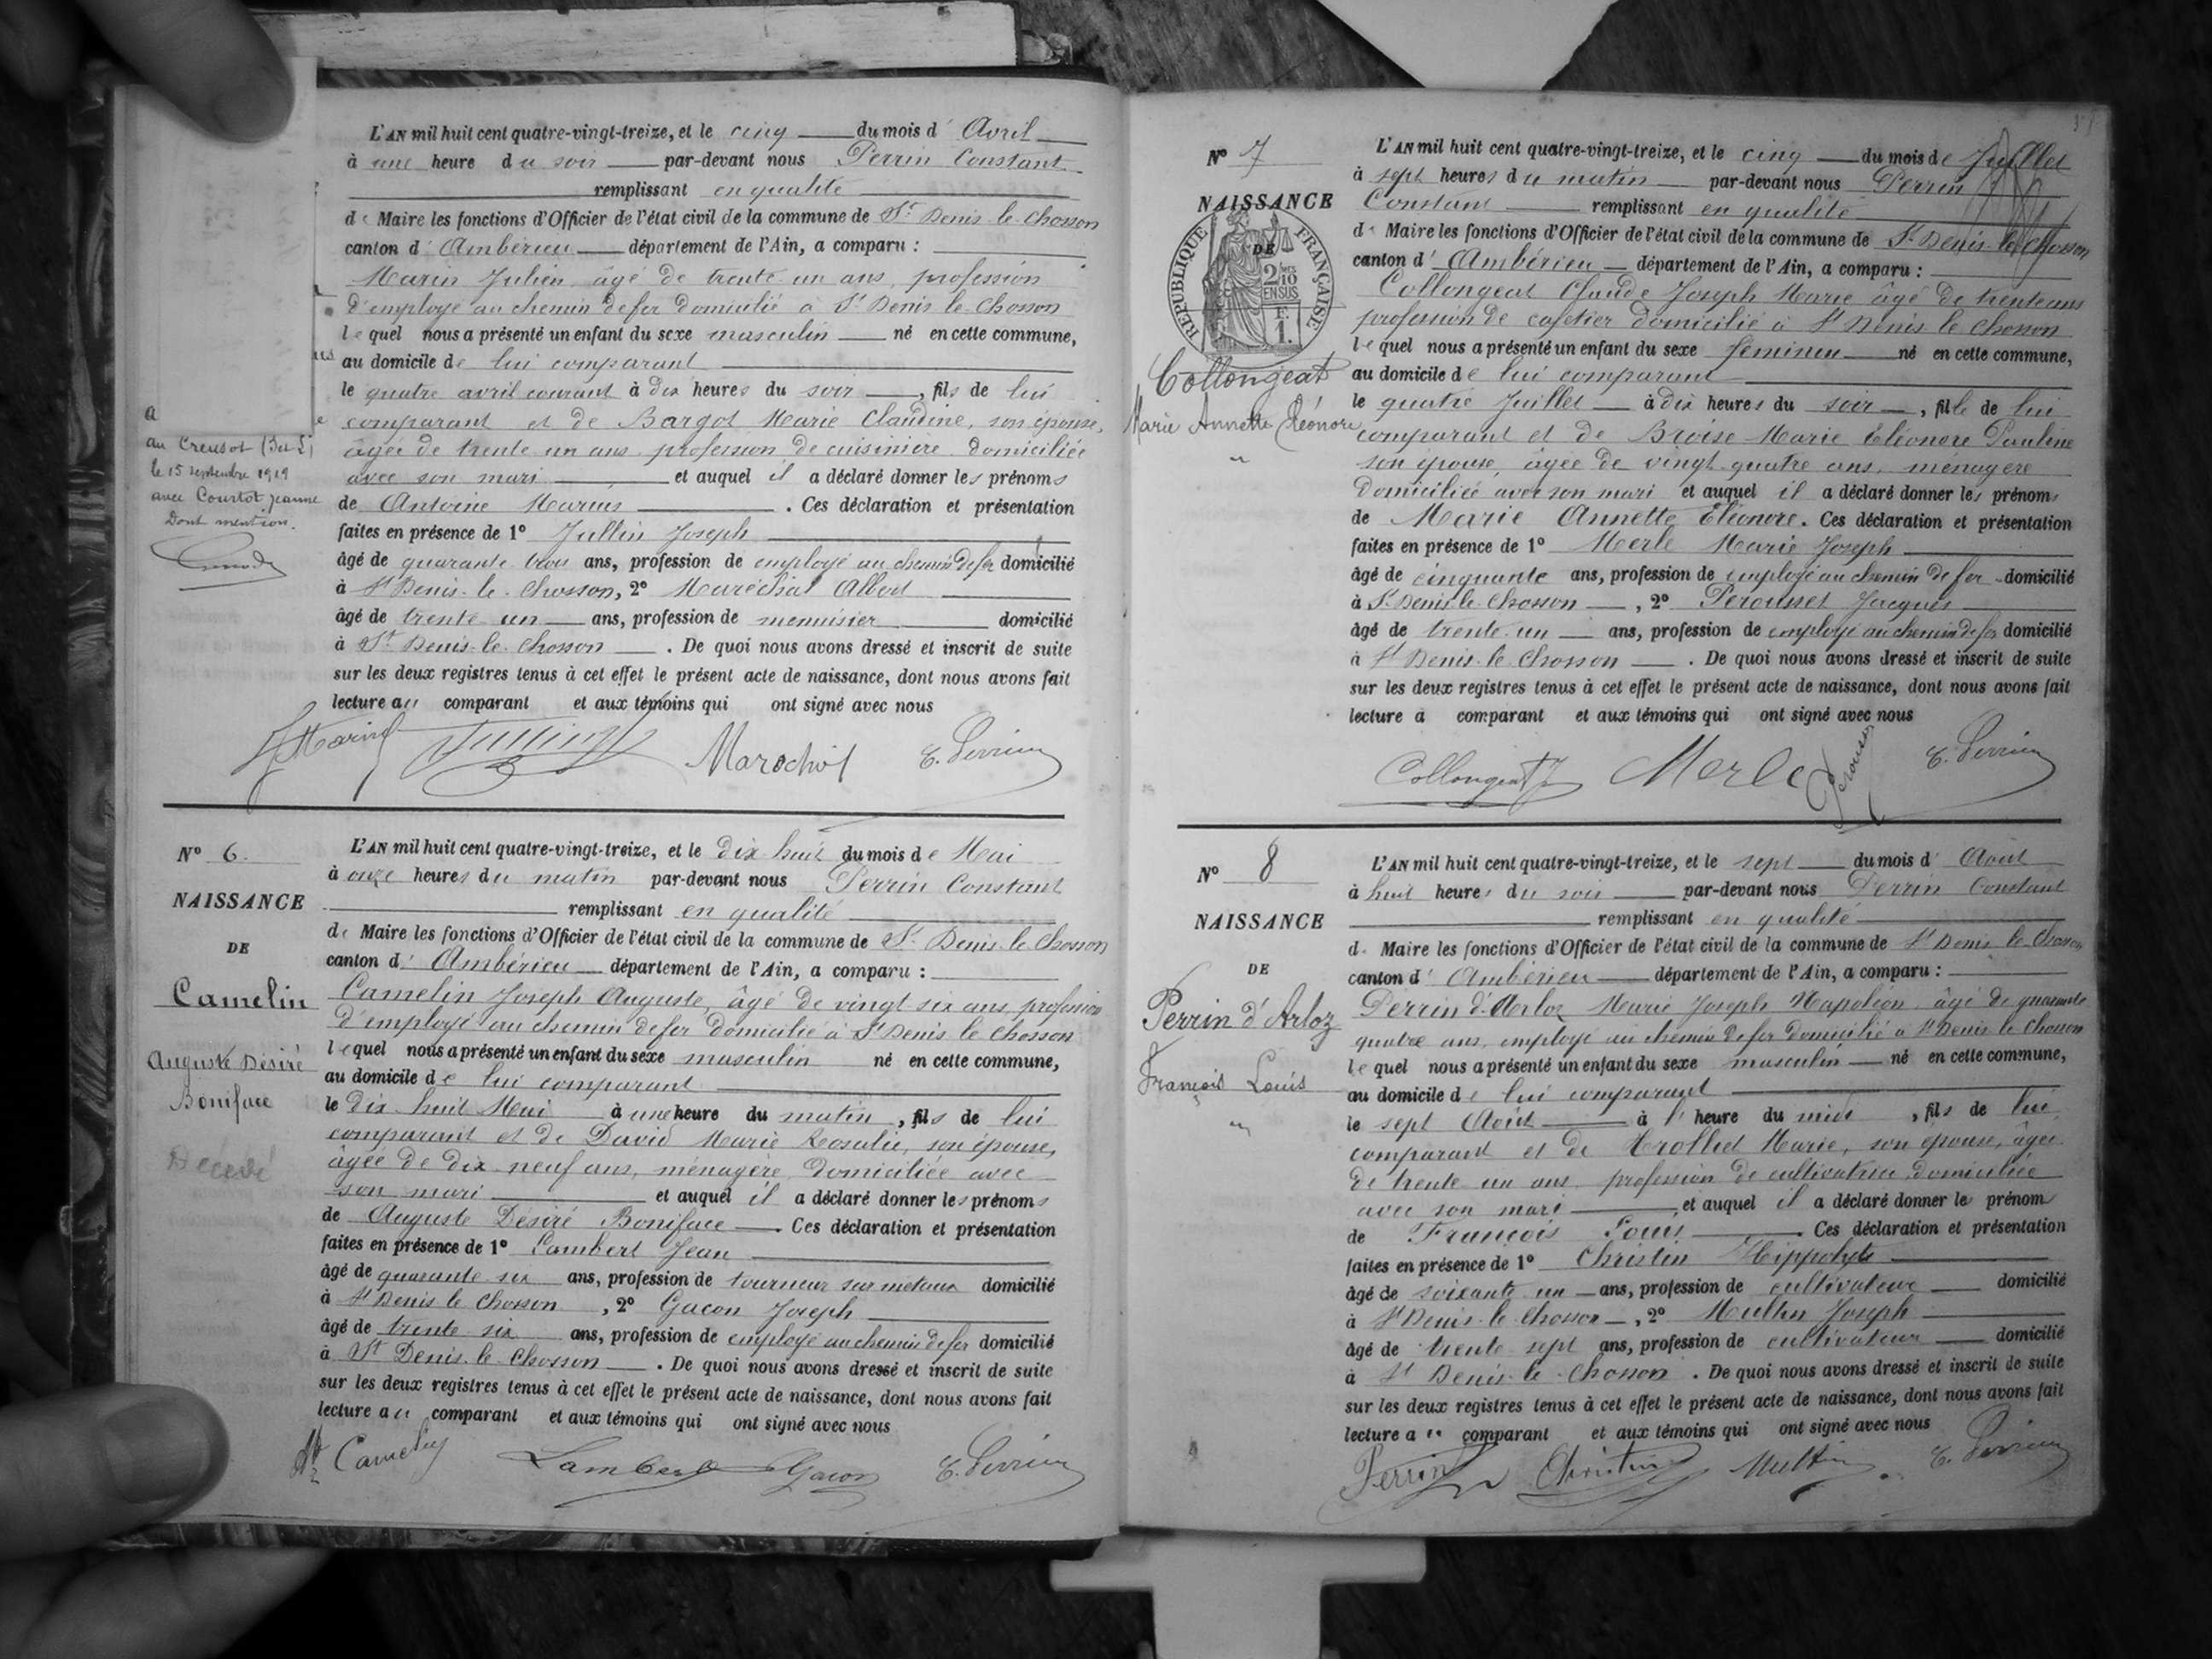 L'AN mil huit cent quatre-vingt-treize, et le cinq du mois d' Avril
à une heure du soir par-devant nous Perrin Constant
remplissant en qualité
de Maire les fonctions d'Officier de l'état civil de la commune de St Denis-le-Chosson
canton d' Ambérieu département de l'Ain, a comparu :
Marin Julien âgé de trente un ans, profession
d'employé au chemin de fer domicilié à St Denis le Chosson
lequel nous a présenté un enfant du sexe masculin né en cette commune,
au domicile de lui comparant
le quatre avril courant à dix heures du soir, fils de lui
comparant et de Bargot Marie Claudine, son épouse,
âgée de trente un ans profession de cuisinière domiciliée
avec son mari et auquel il a déclaré donner les prénoms
de Antoine Marius. Ces déclaration et présentation
faites en présence de 1° Jullin Joseph
âgé de quarante trois ans, profession de employé au chemin de fer domicilié
à St Denis-le-Chosson, 2° Maréchal Albert
âgé de trente un ans, profession de menuisier domicilié
à St Denis-le-Chosson. De quoi nous avons dressé et inscrit de suite
sur les deux registres tenus à cet effet le présent acte de naissance, dont nous avons fait
lecture au comparant et aux témoins qui ont signé avec nous
a
au Creusot (S et L)
le 15 septembre 1919
avec Courtot Jeanne
Dont mention.
Marin
Jullin
Maréchal
C. Perrin
N° 6.
NAISSANCE
DE
Camelin
Auguste Désiré
Boniface
Décédé
L'AN mil huit cent quatre-vingt-treize, et le dix huit du mois de Mai
à onze heures du matin par-devant nous Perrin Constant
remplissant en qualité
de Maire les fonctions d'Officier de l'état civil de la commune de St Denis-le-Chosson
canton d' Ambérieu département de l'Ain, a comparu :
Camelin Joseph Auguste, âgé de vingt six ans, profession
d'employé au chemin de fer domicilié à St Denis le Chosson
lequel nous a présenté un enfant du sexe masculin né en cette commune,
au domicile de lui comparant
le dix huit Mai à une heure du matin, fils de lui
comparant et de David Marie Rosalie, son épouse,
âgée de dix neuf ans, ménagère domiciliée avec
son mari et auquel il a déclaré donner les prénoms
de Auguste Désiré Boniface. Ces déclaration et présentation
faites en présence de 1° Lambert Jean
âgé de quarante six ans, profession de tourneur sur métaux domicilié
à St Denis le Chosson, 2° Gacon Joseph
âgé de trente six ans, profession de employé au chemin de fer domicilié
à St Denis-le-Chosson. De quoi nous avons dressé et inscrit de suite
sur les deux registres tenus à cet effet le présent acte de naissance, dont nous avons fait
lecture au comparant et aux témoins qui ont signé avec nous
Camelin
Lambert
Gacon
C. Perrin
N° 7
NAISSANCE
DE
RÉPUBLIQUE FRANÇAISE
2/10 EN SUS
F. 1.
Collongeat
Marie Annette Eléonore
L'AN mil huit cent quatre-vingt-treize, et le cinq du mois de Juillet
à sept heures du matin par-devant nous Perrin
Constant remplissant en qualité
de Maire les fonctions d'Officier de l'état civil de la commune de St Denis-le-Chosson
canton d' Ambérieu département de l'Ain, a comparu :
Collongeat Claude Joseph Marie âgé de trente ans
profession de cafetier domicilié à St Denis le Chosson
lequel nous a présenté un enfant du sexe féminin né en cette commune,
au domicile de lui comparant
le quatre Juillet à dix heures du soir, fille de lui
comparant et de Broise Marie Eléonore Pauline
son épouse, âgée de vingt quatre ans, ménagère
domiciliée avec son mari et auquel il a déclaré donner les prénoms
de Marie Annette Eléonore. Ces déclaration et présentation
faites en présence de 1° Merle Marie Joseph
âgé de cinquante ans, profession de employé au chemin de fer domicilié
à St Denis le Chosson, 2° Perousset Jacques
âgé de trente-un ans, profession de employé au chemin de fer domicilié
à St Denis-le-Chosson. De quoi nous avons dressé et inscrit de suite
sur les deux registres tenus à cet effet le présent acte de naissance, dont nous avons fait
lecture à comparant et aux témoins qui ont signé avec nous
Collongeat J
Merle
Perousset
C. Perrin
N° 8
NAISSANCE
DE
Perrin d'Arloz
François Louis
L'AN mil huit cent quatre-vingt-treize, et le sept du mois d' Août
à huit heures du soir par-devant nous Perrin Constant
remplissant en qualité
de Maire les fonctions d'Officier de l'état civil de la commune de St Denis-le-Chosson
canton d' Ambérieu département de l'Ain, a comparu :
Perrin d'Arloz Marie Joseph Napoléon âgé de quarante
quatre ans, employé au chemin de fer domicilié à St Denis le Chosson
lequel nous a présenté un enfant du sexe masculin né en cette commune,
au domicile de lui comparant
le sept Août à l' heure du midi, fils de lui
comparant et de Trolliet Marie, son épouse, âgée
de trente un ans profession de cultivatrice domiciliée
avec son mari et auquel il a déclaré donner le prénom
de François Louis Ces déclaration et présentation
faites en présence de 1° Christin Hippolyte
âgé de soixante un ans, profession de cultivateur domicilié
à St Denis-le-Chosson, 2° Multin Joseph
âgé de trente sept ans, profession de cultivateur domicilié
à St Denis-le-Chosson. De quoi nous avons dressé et inscrit de suite
sur les deux registres tenus à cet effet le présent acte de naissance, dont nous avons fait
lecture a comparant et aux témoins qui ont signé avec nous
Perrin
Christin
Multin
C. Perrin